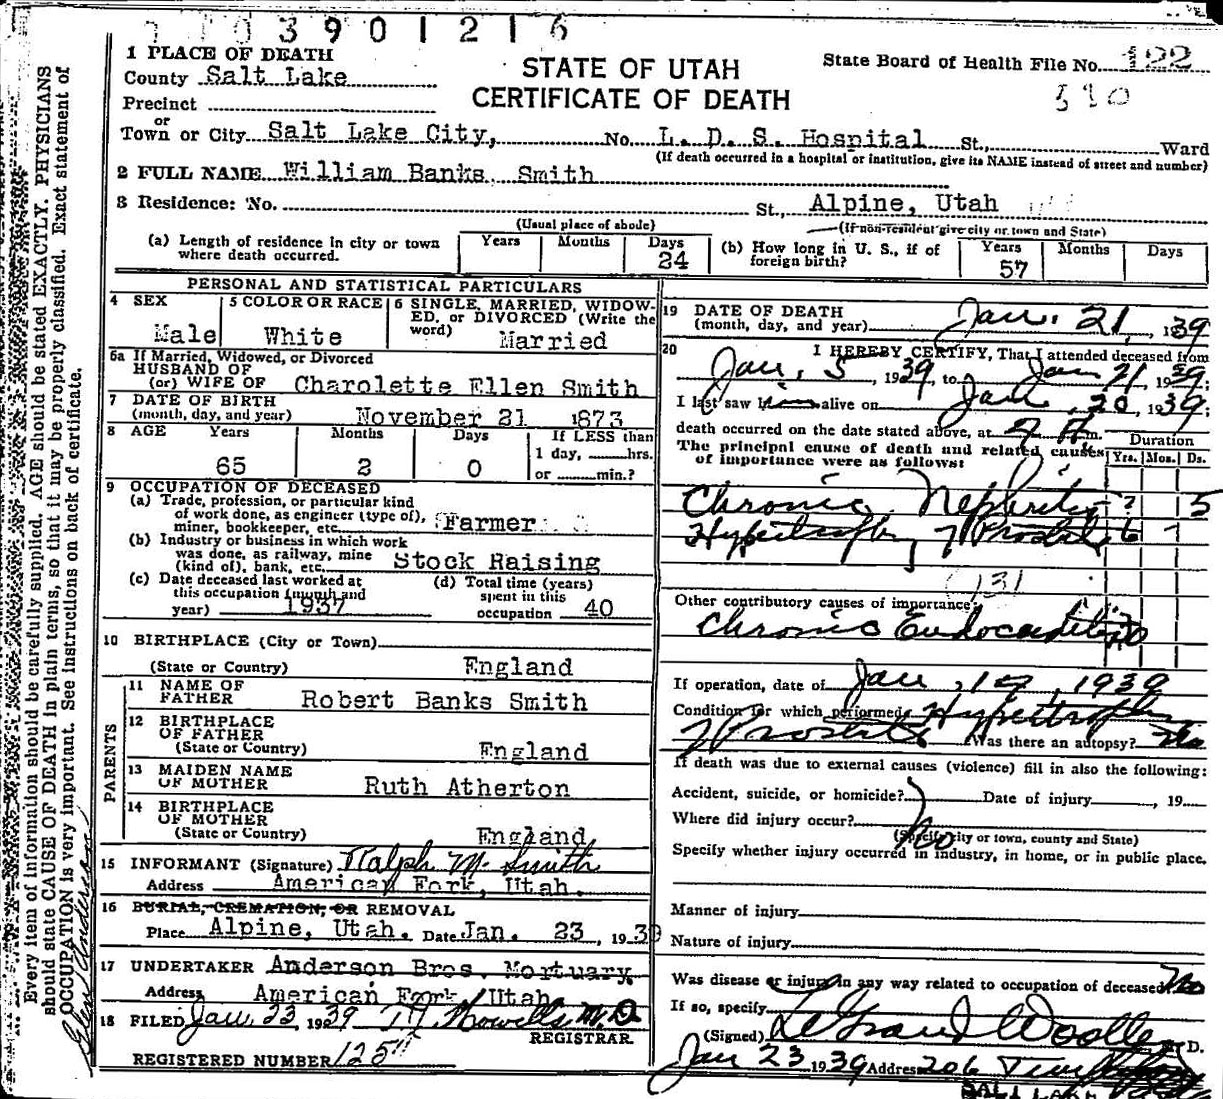 3 9 0 1 2 1 6
1 PLACE OF DEATH
County Salt Lake
STATE OF UTAH
CERTIFICATE OF DEATH
State Board of Health File No. 122
Precinct
or
Town or City Salt Lake City, No. L. D. S. Hospital St., Ward
(If death occurred in a hospital or institution, give its NAME instead of street and number)
2 FULL NAME William Banks Smith
3 Residence: No. St., Alpine, Utah
(Usual place of abode) (If non-resident give city or town and State)
(a) Length of residence in city or town where death occurred. Years Months Days 24
(b) How long in U. S., if of foreign birth? Years 57 Months Days
PERSONAL AND STATISTICAL PARTICULARS
4 SEX Male
5 COLOR OR RACE White
6 SINGLE, MARRIED, WIDOWED, or DIVORCED (Write the word) Married
6a If Married, Widowed, or Divorced
HUSBAND OF
(or) WIFE OF Charolette Ellen Smith
7 DATE OF BIRTH
(month, day, and year) November 21 1873
8 AGE Years 65 Months 2 Days 0 If LESS than 1 day, hrs. or min.?
9 OCCUPATION OF DECEASED
(a) Trade, profession, or particular kind
of work done, as engineer (type of),
miner, bookkeeper, etc. Farmer
(b) Industry or business in which work
was done, as railway, mine
(kind of), bank, etc. Stock Raising
(c) Date deceased last worked at
this occupation (month and
year) 1937
(d) Total time (years)
spent in this
occupation 40
10 BIRTHPLACE (City or Town)
(State or Country) England
PARENTS
11 NAME OF
FATHER Robert Banks Smith
12 BIRTHPLACE
OF FATHER
(State or Country) England
13 MAIDEN NAME
OF MOTHER Ruth Atherton
14 BIRTHPLACE
OF MOTHER
(State or Country) England
15 INFORMANT (Signature) Ralph M. Smith
Address American Fork, Utah.
16 BURIAL, CREMATION, OR REMOVAL
Place Alpine, Utah. Date Jan. 23, 1939
17 UNDERTAKER Anderson Bros. Mortuary
Address American Fork, Utah
18 FILED Jan 23 1939 Howells M.D.
REGISTRAR
REGISTERED NUMBER 125
19 DATE OF DEATH
(month, day, and year) Jan. 21, 1939
20 I HEREBY CERTIFY, That I attended deceased from
Jan. 5, 1939, to Jan 21 1939;
I last saw him alive on Jan. 20, 1939;
death occurred on the date stated above, at m.
The principal cause of death and related causes
of importance were as follows:
Duration
Yrs. Mos. Ds.
Chronic Nephritis ? 5
Hypertrophy of Prostate 6
131
Other contributory causes of importance:
Chronic Endocarditis
If operation, date of Jan, 17, 1939
Condition for which performed Hypertrophy
of Prostate Was there an autopsy? No
If death was due to external causes (violence) fill in also the following:
Accident, suicide, or homicide? Date of injury , 19
Where did injury occur? No
(Specify city or town, county and State)
Specify whether injury occurred in industry, in home, or in public place.
Manner of injury
Nature of injury
Was disease or injury in any way related to occupation of deceased? No
If so, specify
(Signed) LeGrand Woolley M. D.
Jan 23 1939 Address 206
SALT LAKE
Every item of information should be carefully supplied. AGE should be stated EXACTLY. PHYSICIANS
should state CAUSE OF DEATH in plain terms, so that it may be properly classified. Exact statement of
OCCUPATION is very important. See instructions on back of certificate.
Glen Anderson